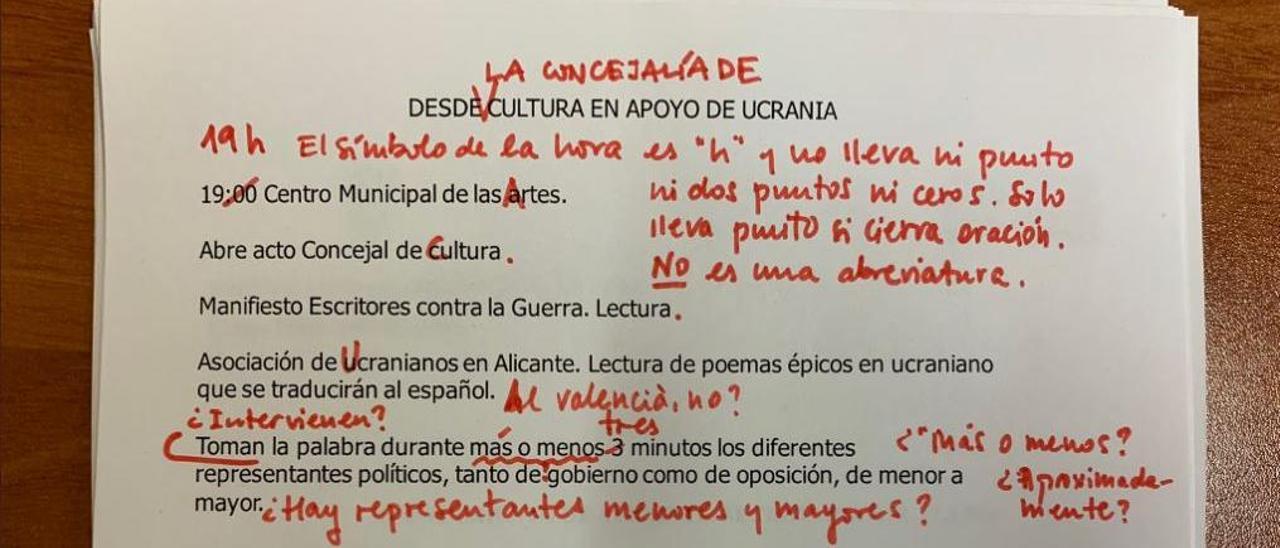 LA CONCEJALÍA DE
DESDE CULTURA EN APOYO DE UCRANIA
19 h El símbolo de la hora es "h" y no lleva ni punto
19:00 Centro Municipal de las Artes.
ni dos puntos ni ceros. Solo
lleva punto si cierra oración.
Abre acto Concejal de Cultura.
NO es una abreviatura.
Manifiesto Escritores contra la Guerra. Lectura.
Asociación de Ucranianos en Alicante. Lectura de poemas épicos en ucraniano
que se traducirán al español. Al valencià, no?
¿Intervienen? tres
Toman la palabra durante más o menos 3 minutos los diferentes
¿"Más o menos?
representantes políticos, tanto de gobierno como de oposición, de menor a
¿Aproximada-
mente?
mayor. ¿Hay representantes menores y mayores?